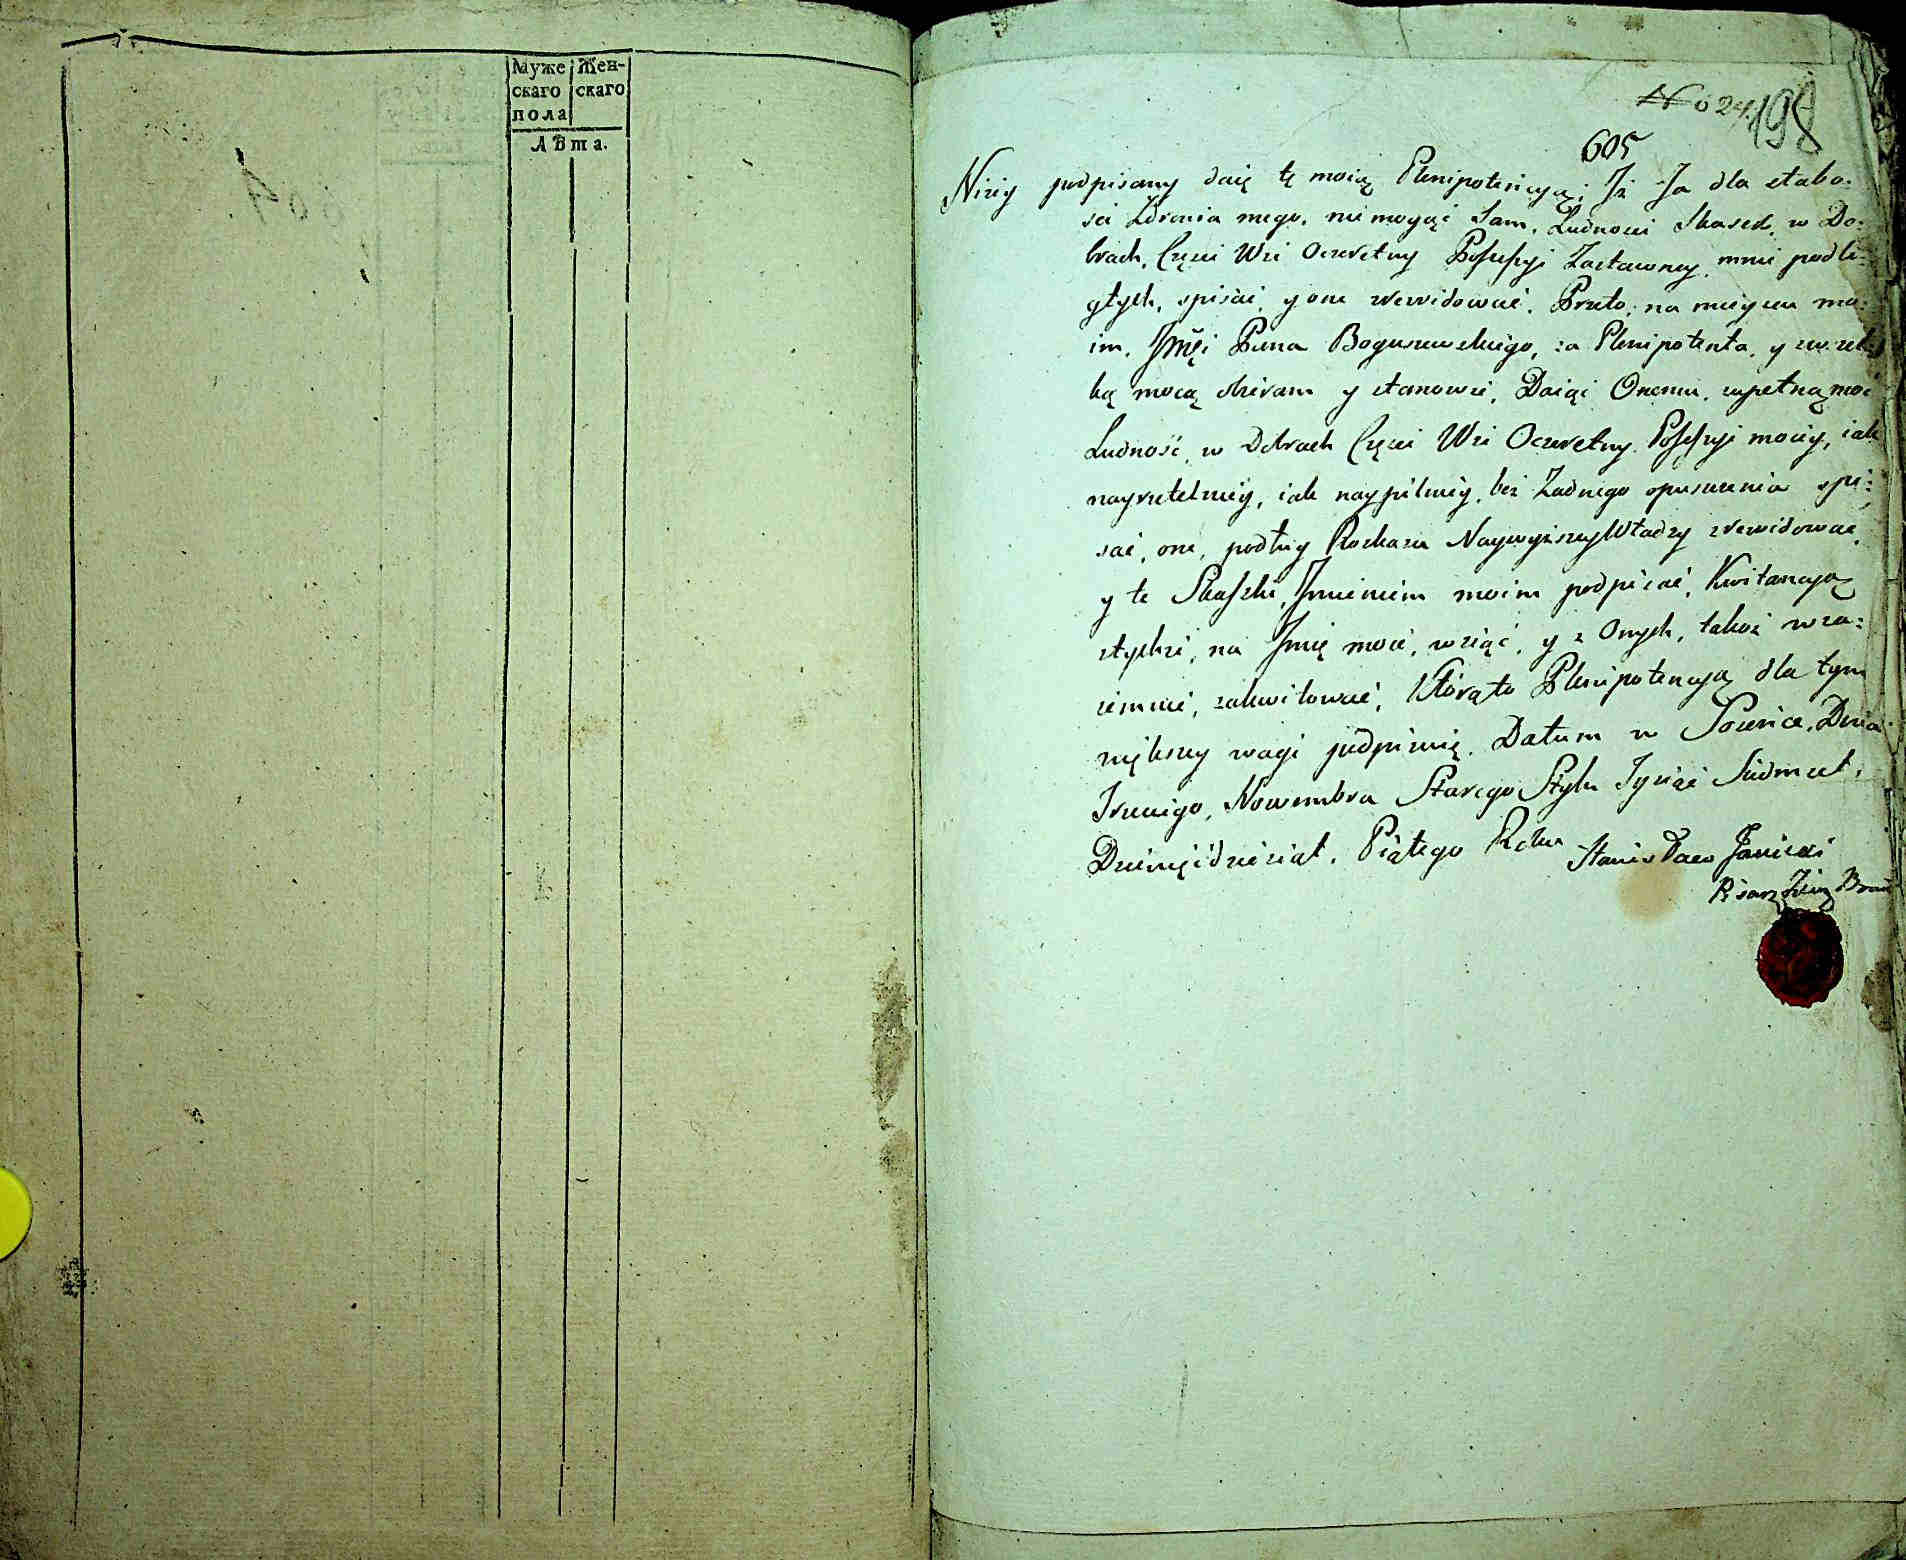 Муже Жен-
скаго скаго
пола
Лѣта.
No 24. 198
605
Niżey podpisany daię tę moią Plenipotencyą; Iż Ja dla słabo:
sci Zdrowia mego, nie mogąc Sam, Ludnosci Skasek, w Do:
brach, Częsci Wsi Oczeretny Possessyi Zastawney, mnie podle:
głych, spisać, y one rewidować. Przeto, na mieyscu mo:
im, Jmći Pana Boguszewskiego, za Plenipotenta, y wszel:
ką mocą obieram y stanowię, Daiąc Onemu, zupełną moc
Ludność, w Dobrach Częsci Wsi Oczeretny Possessyi moiey, iak
nayrzetelniey, iak naypilniey, bez Żadnego opuszczenia spi:
sać, one, podług Roskazu Naywyższey Władzy rewidować,
y te Skaski, Imieniem moim podpisać, Kwitancyą
na Imię moie, wziąć, y z Onych, takoż wza:
iemnie, zakwitować, Którąto Plenipotencyą dla tym
większey wagi podpisuię. Datum w Dnia
Trzeciego, Nowembra Starego Stylu Tysiąc Siedmset,
Dziewięćdziesiąt, Piątego Roku Stanisław Janicki
Pisarz